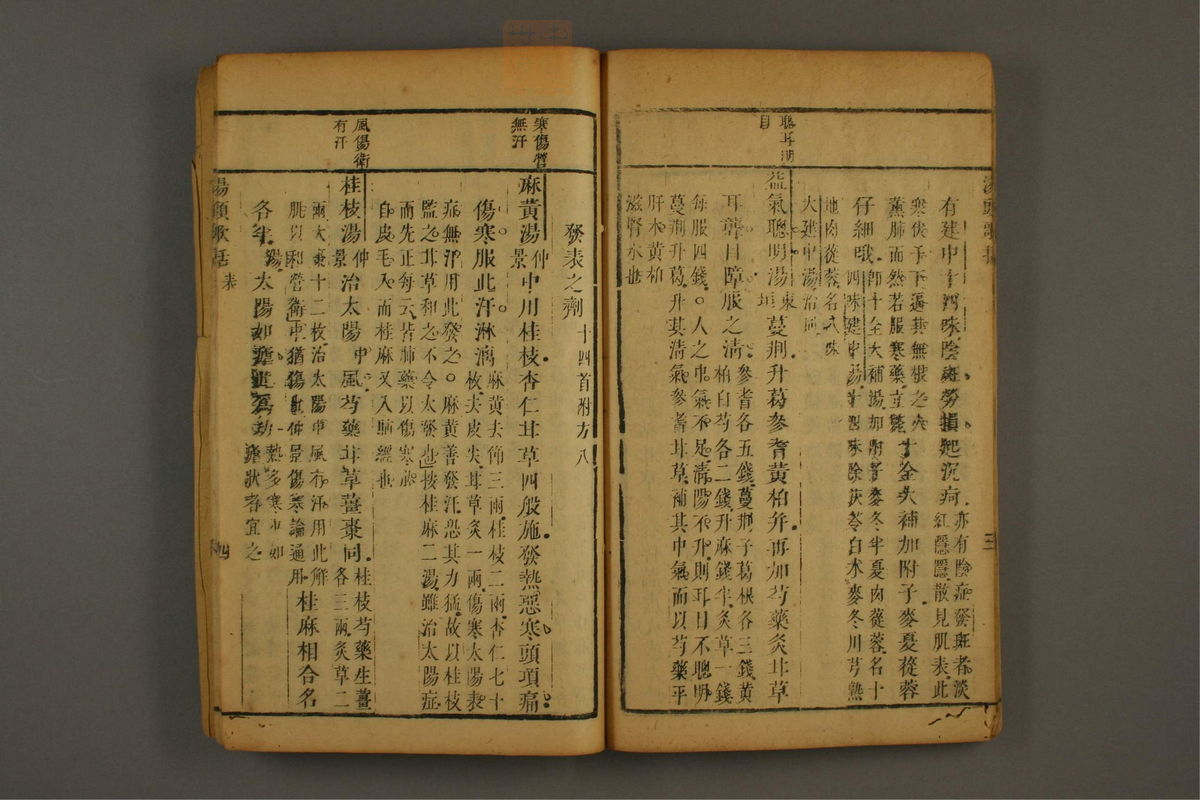 聰耳明
目
有建中十四味陰斑勞損起沉疴亦有陰症發斑者淡
紅隱隱散見肌表此
寒伏于下逼其無根之火
薰肺而然若服寒藥立斃十全大補加附子麥夏蓯蓉
仔細哦即十全大補湯加附子麥冬半夏肉蓯蓉名十
四味建中湯十四味除茯苓白朮麥冬川芎熟
地肉蓯蓉名八味
大建中湯治同
益氣聰明湯東垣蔓荆升葛參耆黃柏并再加芍藥炙甘草
耳聾目障服之清參耆各五錢蔓荆子葛根各三錢黃
柏白芍各二錢升麻錢半炙草一錢
每服四錢〇人之中氣不足清陽不升則耳目不聰明
蔓荆升葛升其清氣參耆甘草補其中氣而以芍藥平
肝木黃柏
滋腎水也
三
寒傷營
無汗
風傷衛
有汗
發表之劑十四首附方八
麻黃湯仲景中用桂枝杏仁甘草四般施發熱惡寒頭項痛
傷寒服此汗淋漓麻黃去節三兩桂枝二兩杏仁七十
枚去皮尖甘草炙一兩傷寒太陽表
症無汗用此發之〇麻黃善發汗恐其力猛故以桂枝
監之甘草和之不令大發也按桂麻二湯雖治太陽症
而先正每云皆肺藥以傷寒必
自皮毛入而桂麻又入肺經也
桂枝湯仲景治太陽中風芍藥甘草薑棗同桂枝芍藥生薑
各三兩炙草二
兩大棗十二枚治太陽中風有汗用此解
肌以和營衛中猶傷也仲景傷寒論通用桂麻相合名
各半湯太陽如瘧此為功熱多寒少如
瘧狀者宜之
湯頭歌括
表
四